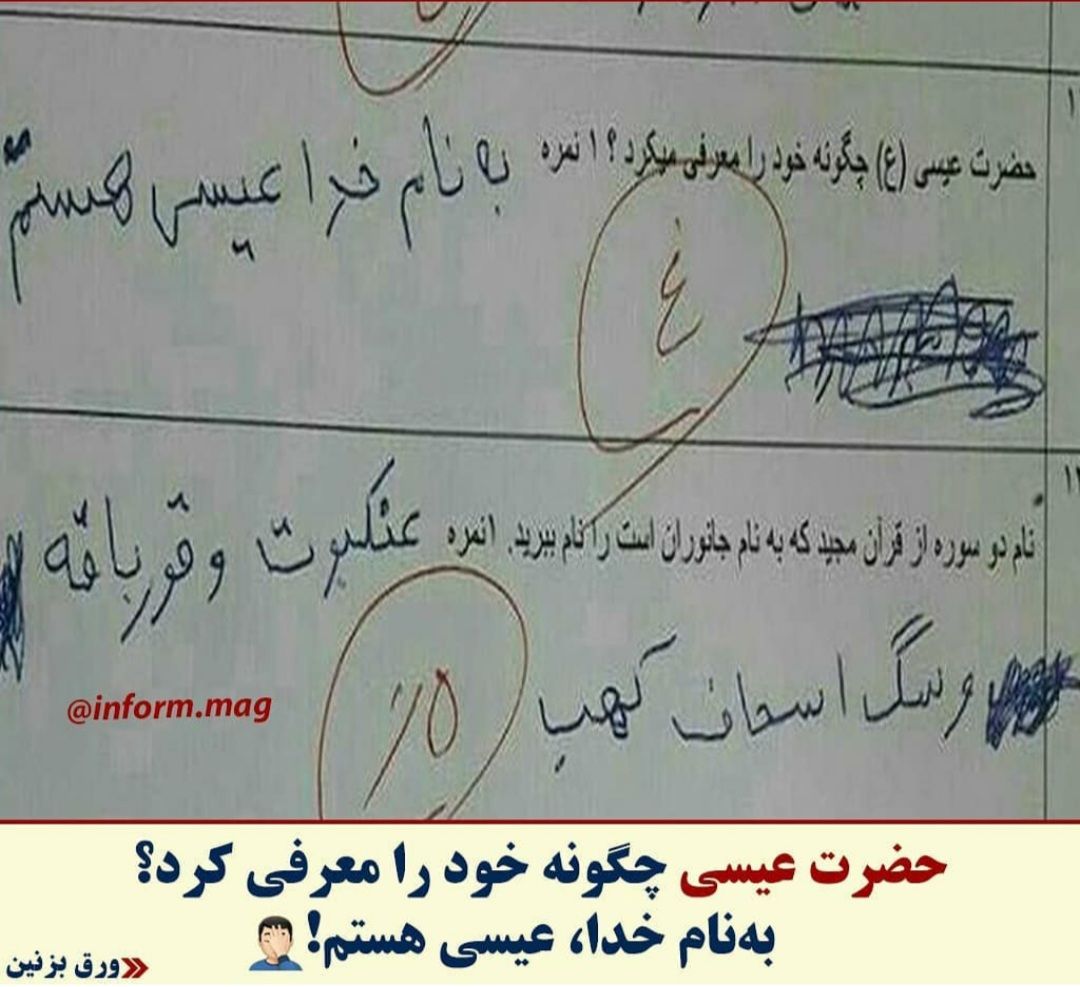 ۱
حضرت عیسی (ع) چگونه خود را معرفی میکرد؟ ۱ نمره به نام خدا عیسی هستم
غ
۱۲
نام دو سوره از قرآن مجید که به نام جانوران است را نام ببرید. ۱نمره عنکبوت و قورباقه
و سگ اسحاف کهب
۵٪
@inform.mag
حضرت عیسی چگونه خود را معرفی کرد؟
به‌نام خدا، عیسی هستم!🤦🏻‍♂️
»ورق بزنین